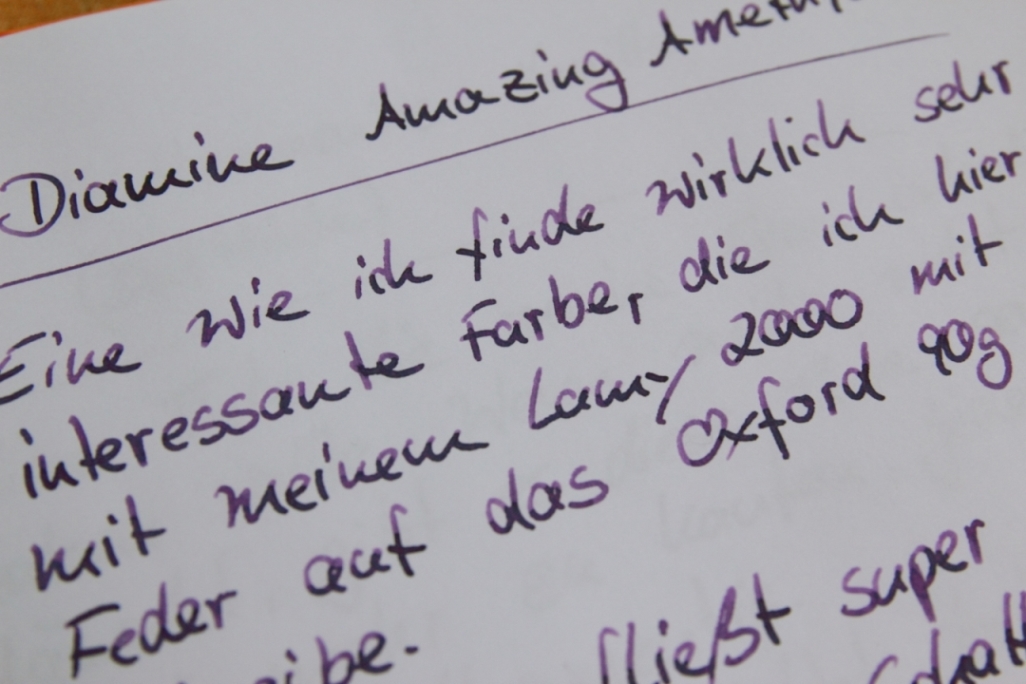 Diamine Amazing
Eine wie ich finde wirklich sehr
interessante Farbe, die ich hier
mit meinem Lamy 2000 mit
Feder auf das Oxford 90g
fließt super